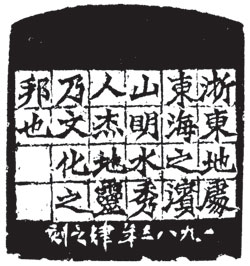 浙東地處
東海之濱
山明水秀
人杰地靈
乃文化之
邦也
一九八三年肆之刻